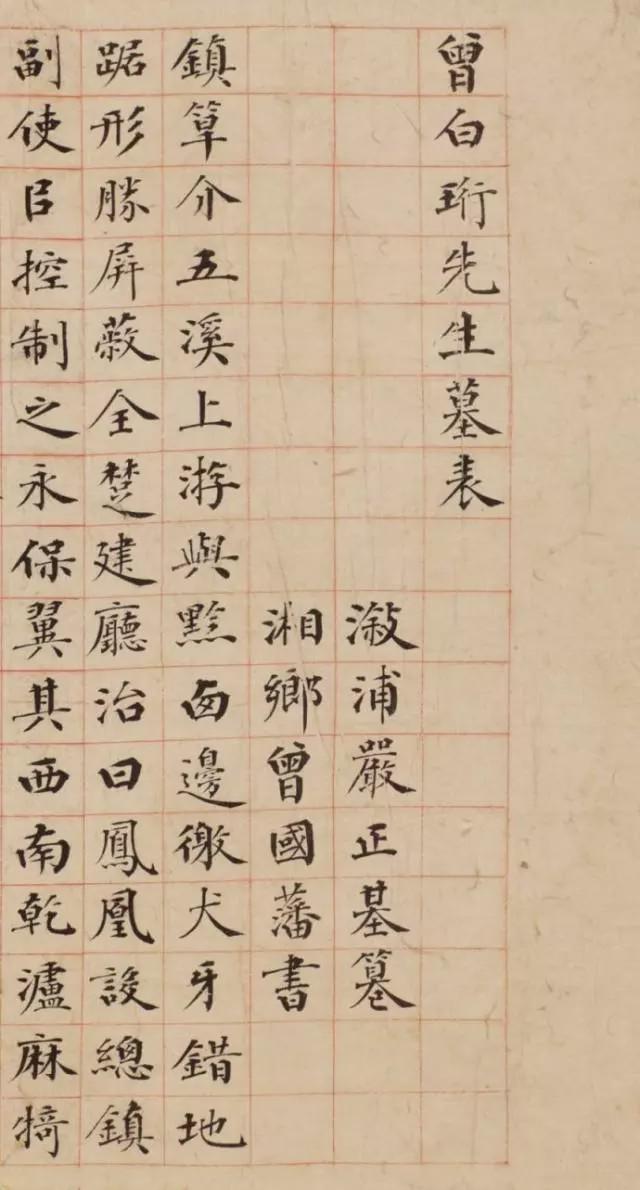 曾白珩先生墓表
溆浦嚴正基篹
湘鄉曾國藩書
鎮筸介五溪上游與黔囪邊徼犬牙錯地
踞形勝屏蔽全楚建廳治曰鳳凰設總鎮
副使㠯控制之永保翼其西南乾瀘麻犄